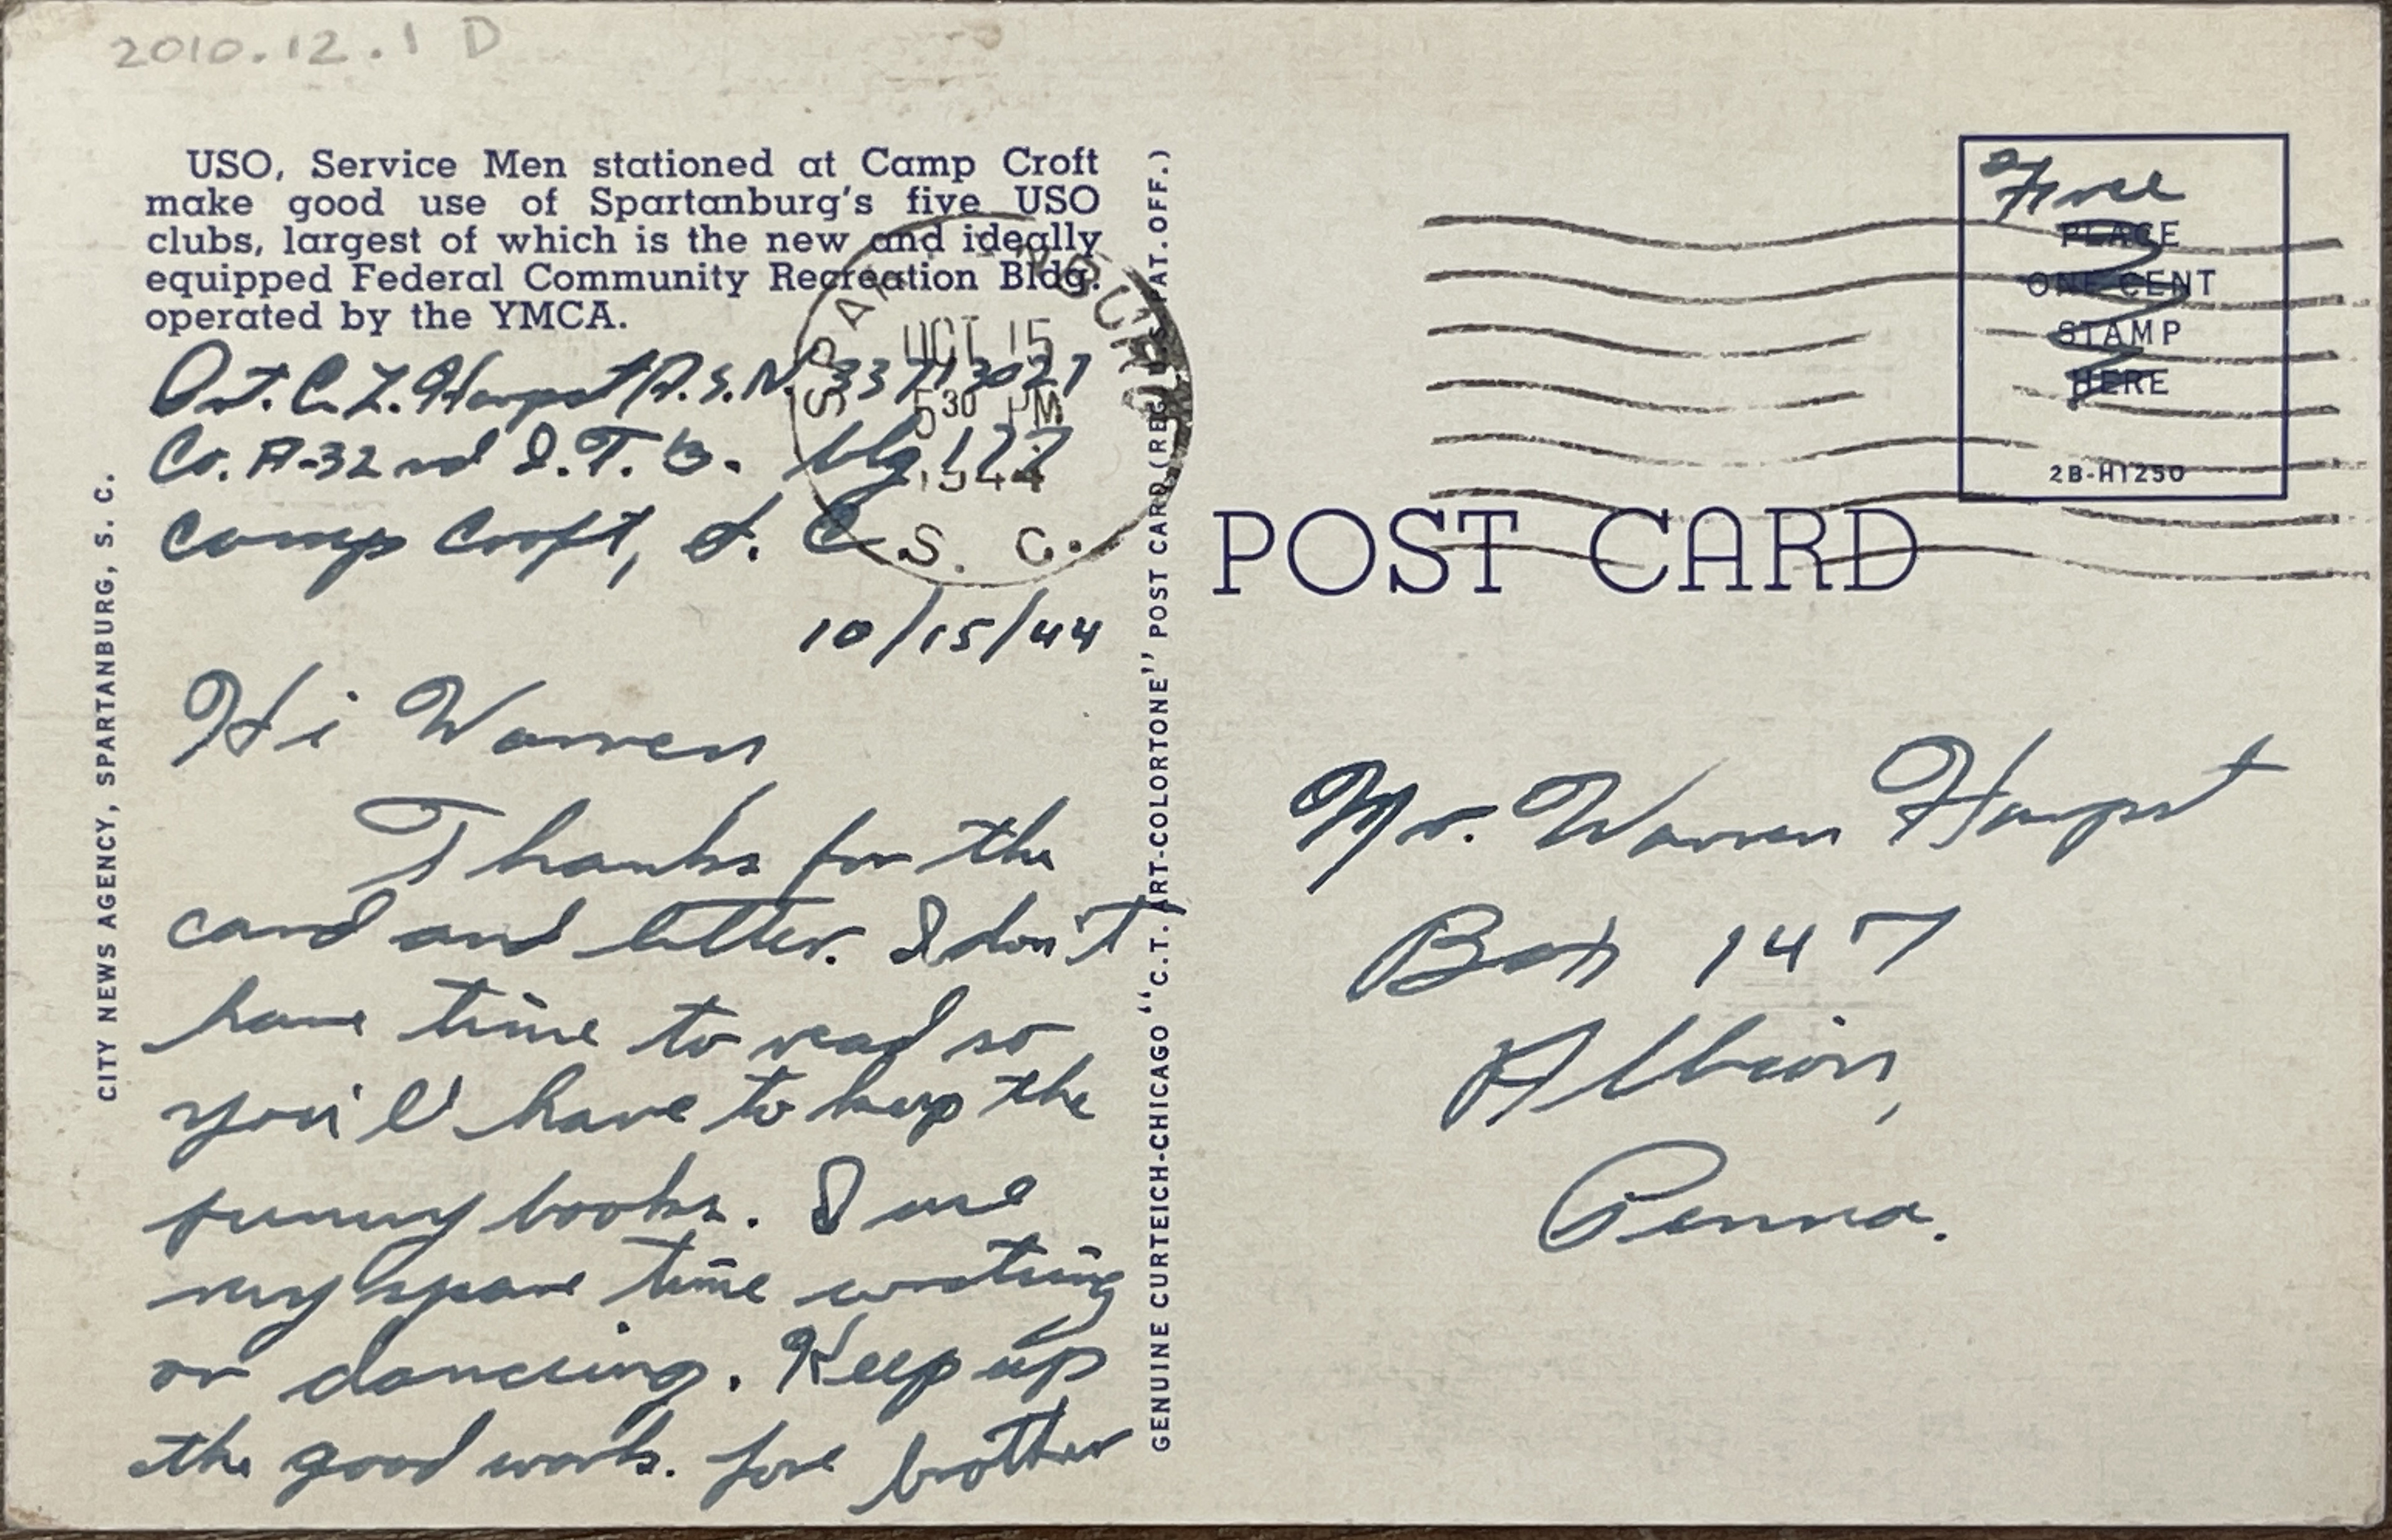 2010.12.1 D
USO, Service Men stationed at Camp Croft
make good use of Spartanburg's five USO
clubs, largest of which is the new and ideally
equipped Federal Community Recreation Bldg.
operated by the YMCA.
Pvt. C. L. Harpst A.S.N. 33713027
Co. A-32nd I.T.B. bldg 122
Camp Croft, S. C.
10/15/44
Hi Warren,
Thanks for the
card and letter. I don't
have time to read so
you'll have to keep the
funny books. I use
my spare time writing
or dancing. Keep up
the good work. Love brother
CITY NEWS AGENCY, SPARTANBURG, S. C.
GENUINE CURTEICH-CHICAGO "C.T. ART-COLORTONE" POST CARD (REG. U.S. PAT. OFF.)
OCT 15
530 PM
1944
S. C.
Free
PLACE
ONE CENT
STAMP
HERE
2B-H1250
POST CARD
Mr. Warren Harpst
Box 147
Albion,
Penna.